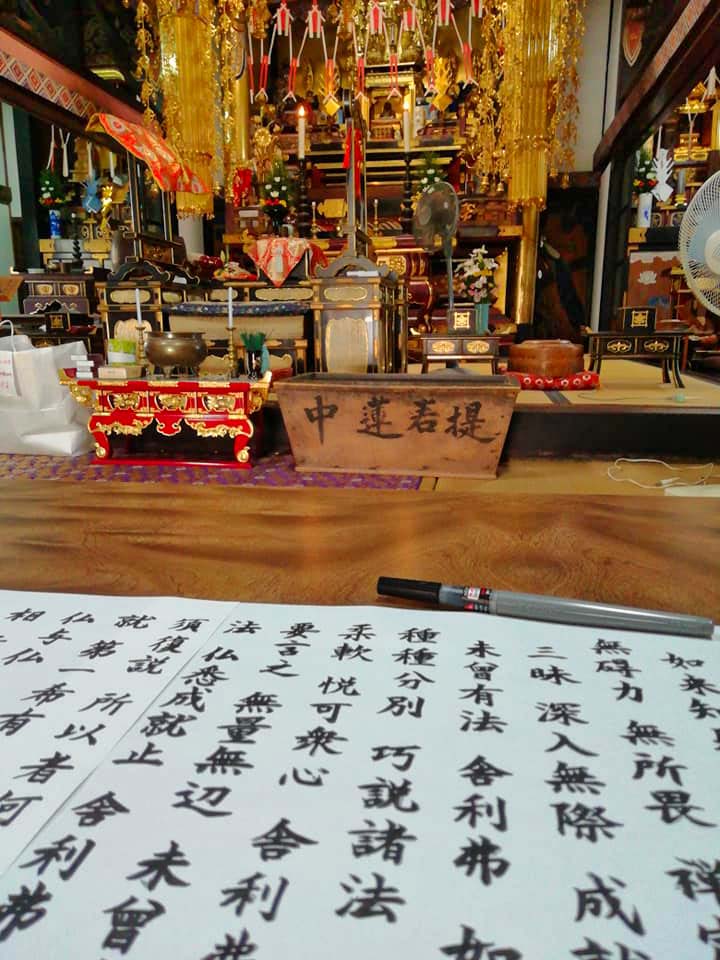 提若蓮中
如来知
無碍力 無所畏 禅定
三昧 深入無際 成就
未曾有法 舎利弗 如
種種分別 巧説諸法
柔軟 悦可衆心 舎利弗
要言之 無量無辺 未曾
法 仏悉成就 止 舎利弗
須復説 所以者何
就 第一希有
仏与仏
相